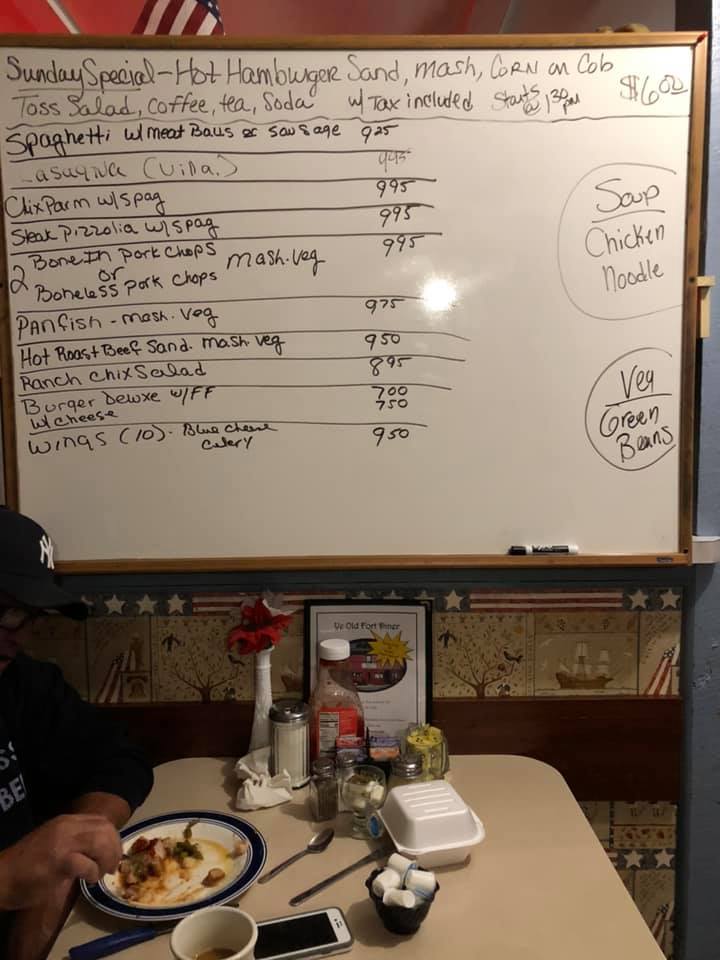 Sunday Special - Hot Hamburger Sand, mash, Corn on Cob
Toss Salad, coffee, tea, Soda w/ Tax included Starts @ 1:30 pm $6.00
Spaghetti w/ meat Balls or sausage 925
Lasagna 995
Chix Parm w/ spag 995
Steak Pizzolia w/ spag 995
2 Bone In pork chops
or mash. veg 995
Boneless pork chops
Panfish - mash. veg 975
Hot Roast Beef Sand. mash veg 950
Ranch chix Salad 895
Burger Deluxe w/ FF 700
w/ cheese 750
Wings (10) - Blue cheese 950
celery
Soup
Chicken
Noodle
Veg
Green
Beans
NY
Ye Old Fort Diner
SS
BE